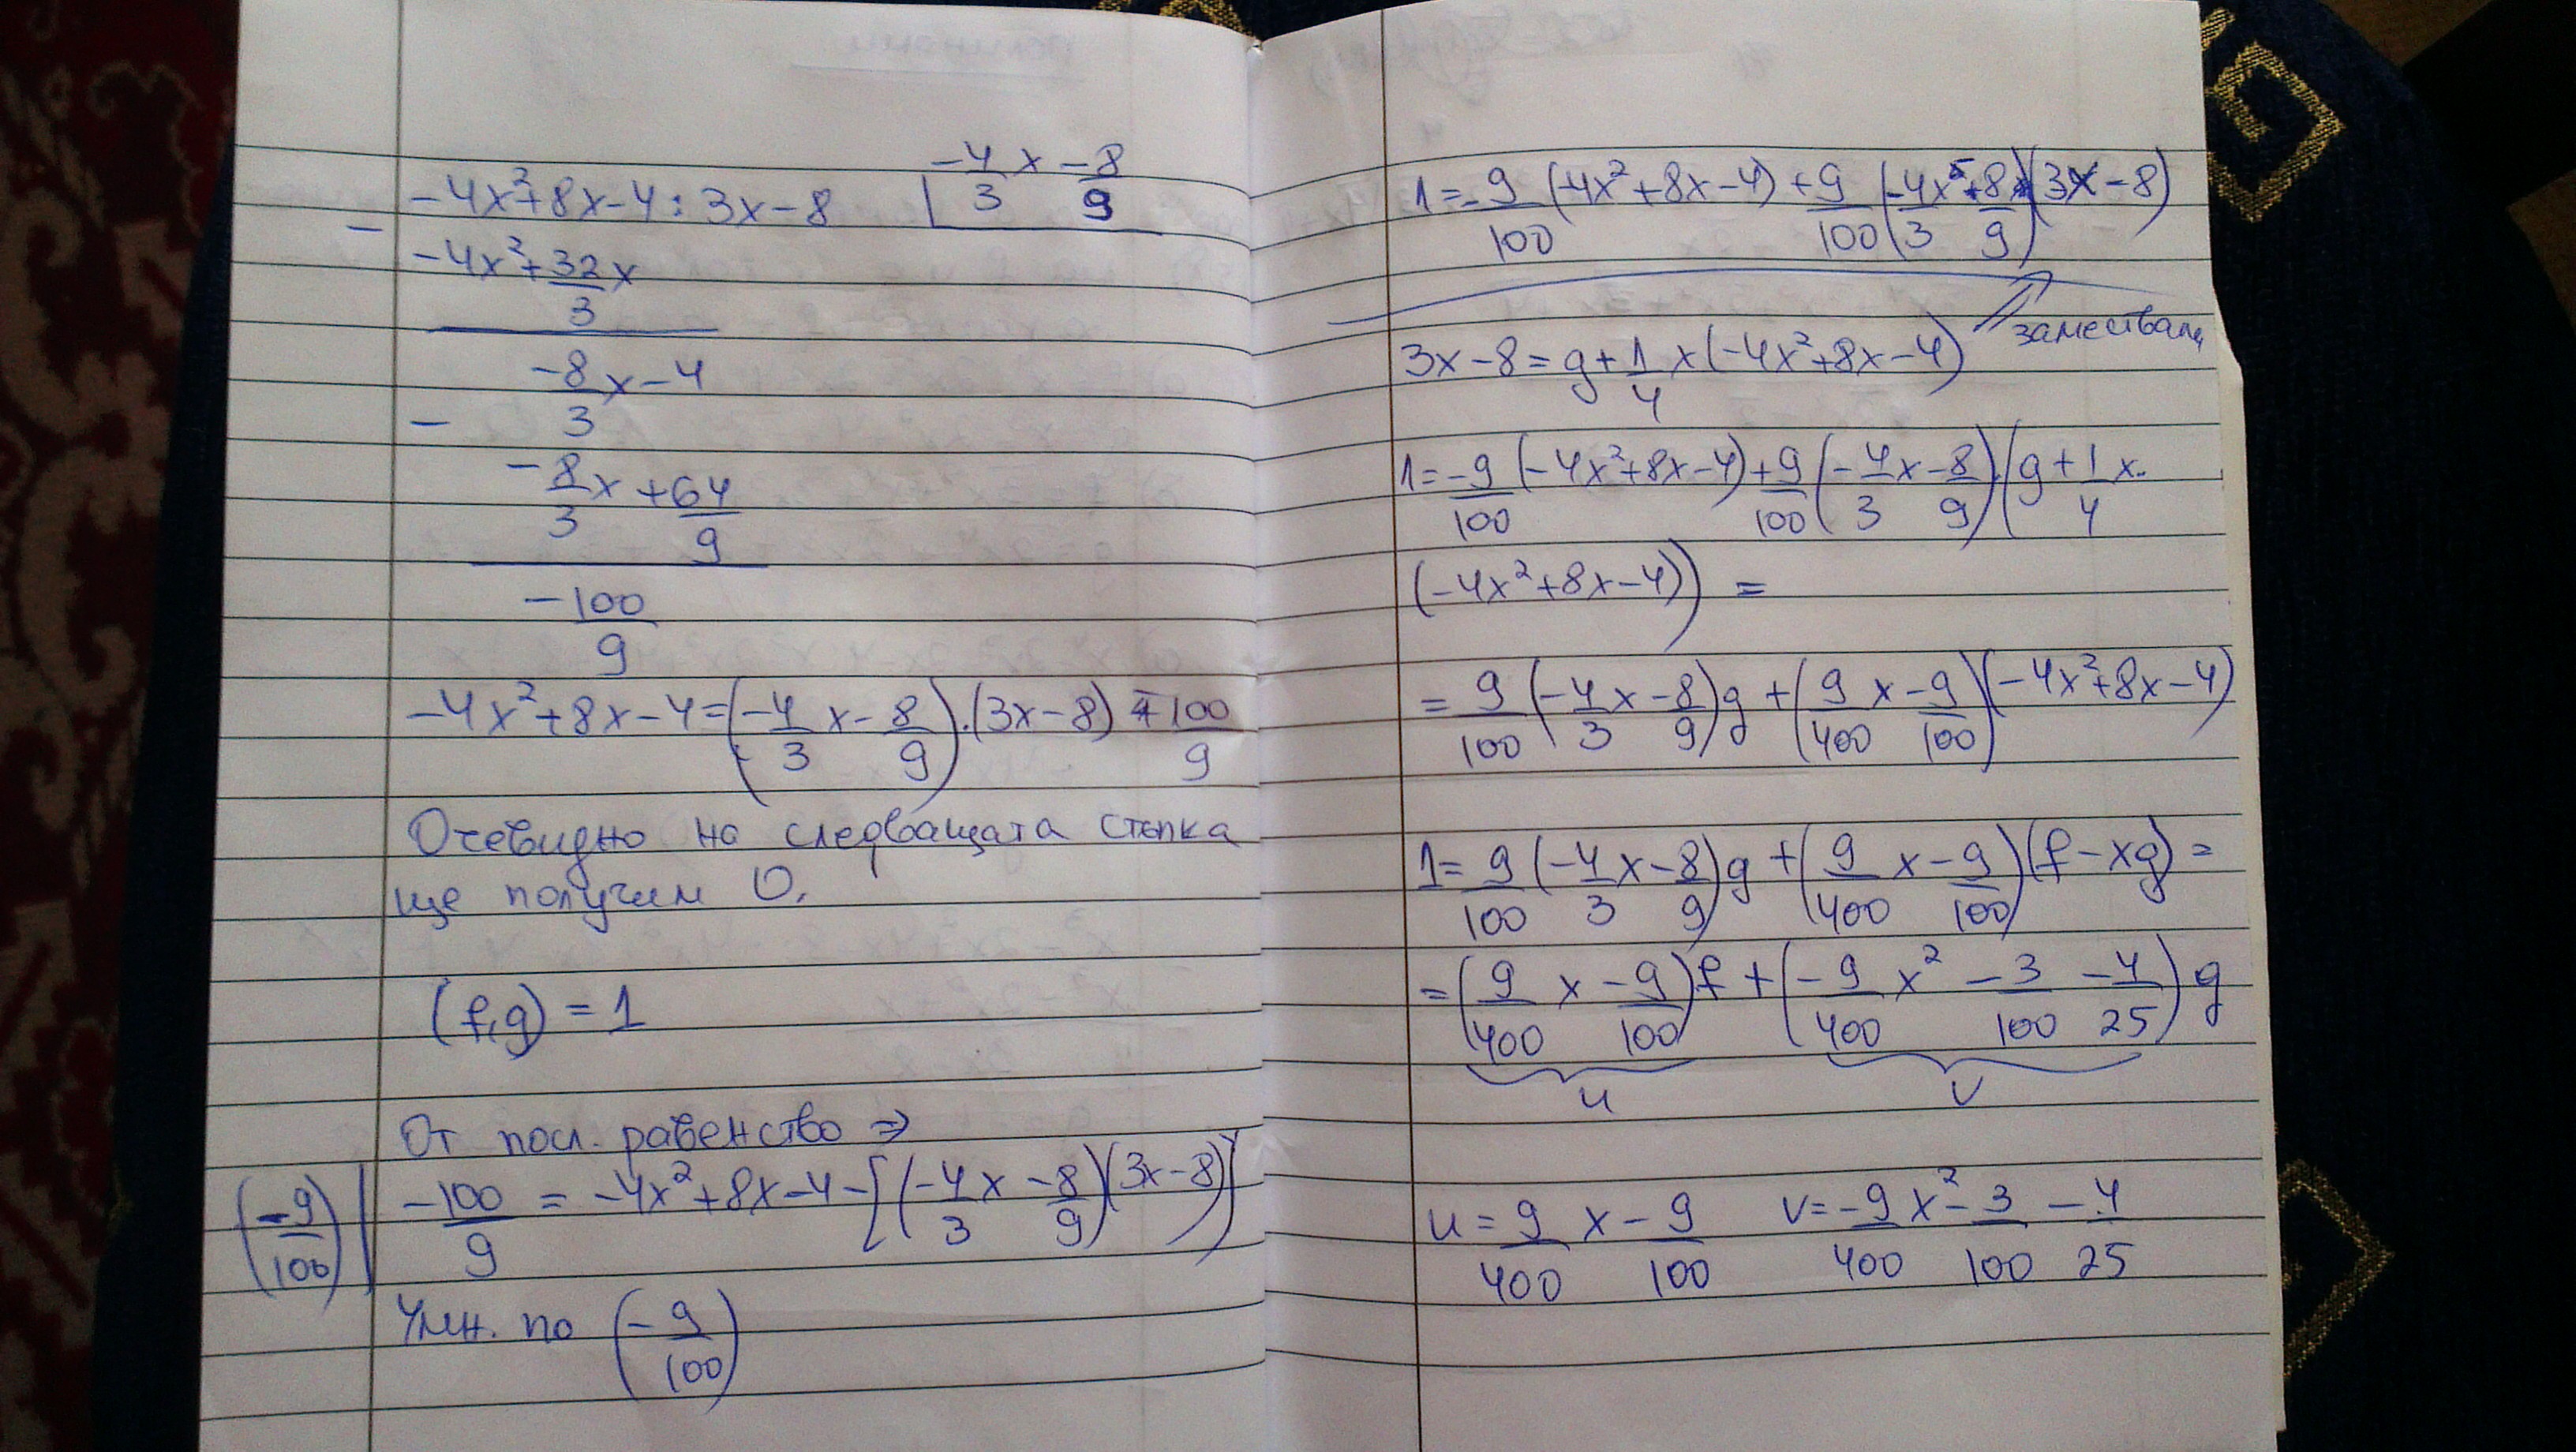 -4x²+8x-4 : 3x-8 | -4/3 x - 8/9
- -4x² + 32/3 x
-8/3 x - 4
- -8/3 x + 64/9
-100/9
-4x²+8x-4 = (-4/3 x - 8/9).(3x-8) - 100/9
Очевидно на следващата стъпка
ще получим 0.
(f,g) = 1
От посл. равенство ⇒
(-9/100) | -100/9 = -4x²+8x-4-[(-4/3 x - 8/9)(3x-8)]
Умн. по (-9/100)
1 = -9/100 (-4x²+8x-4) + 9/100 (-4/3 x - 8/9)(3x-8)
заместваме
3x-8 = g + 1/4 x (-4x²+8x-4)
1 = -9/100 (-4x²+8x-4) + 9/100 (-4/3 x - 8/9)(g + 1/4 x.
(-4x²+8x-4)) =
= 9/100 (-4/3 x - 8/9) g + (9/400 x - 9/100)(-4x²+8x-4)
1 = 9/100 (-4/3 x - 8/9) g + (9/400 x - 9/100)(f-xg) =
= (9/400 x - 9/100) f + (-9/400 x² - 3/100 - 4/25) g
u v
u = 9/400 x - 9/100 v = -9/400 x² - 3/100 - 4/25